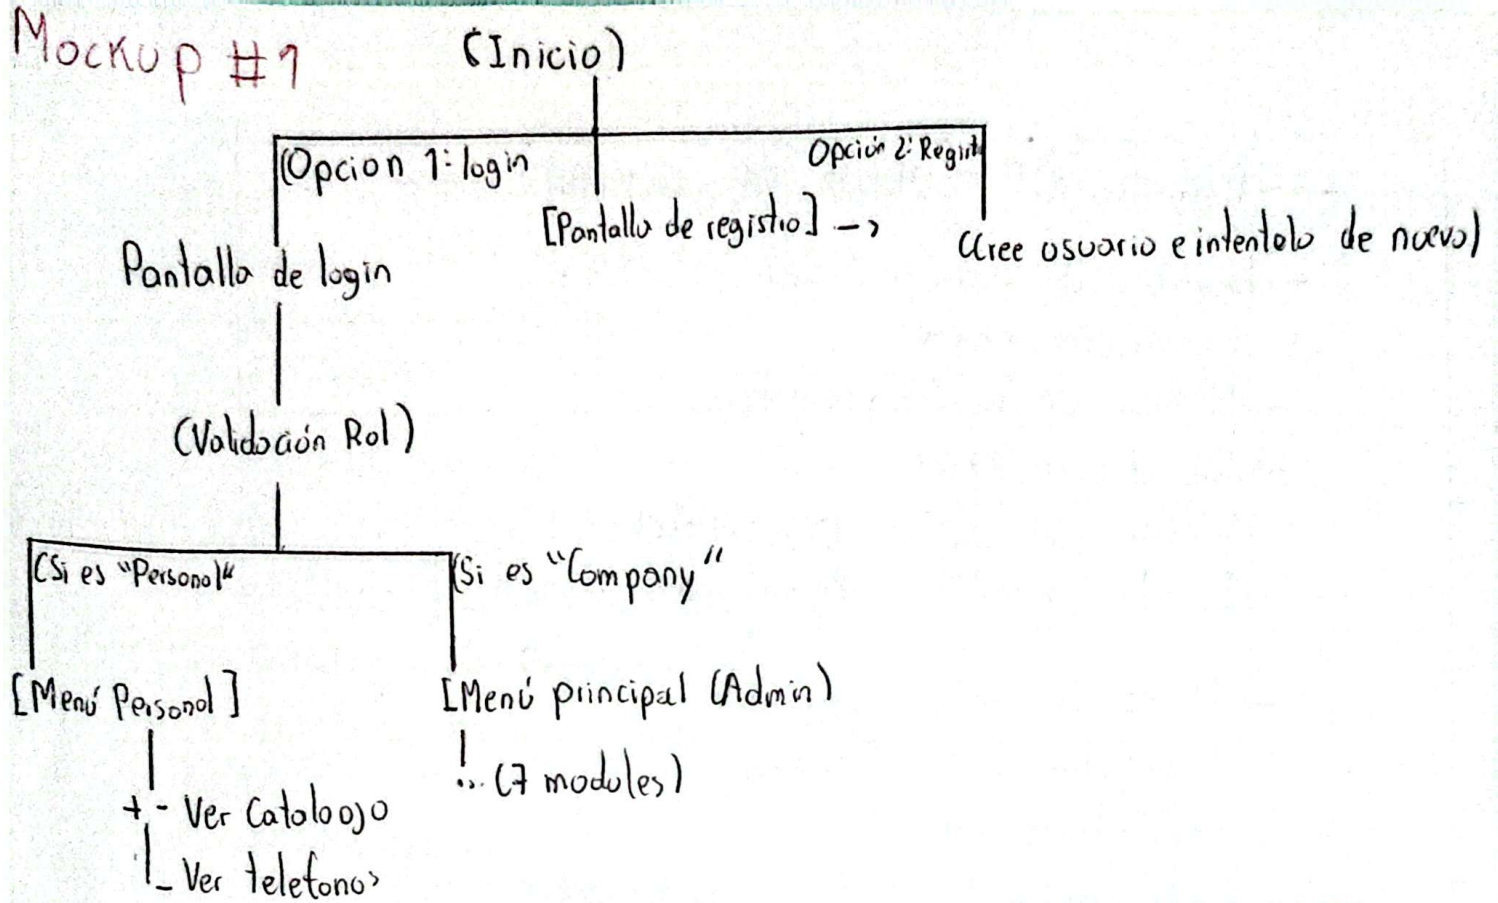 Mockup #1
(Inicio)
(Opcion 1: login
Opción 2: Regist
[Pantalla de registro] -->
Cree usuario e intentelo de nuevo)
Pantalla de login
(Validación Rol)
(Si es "Personal"
(Si es "Company"
[Menú Personal]
[Menú principal (Admin)
!... (7 modules)
+ - Ver Cataloogo
- Ver telefonos